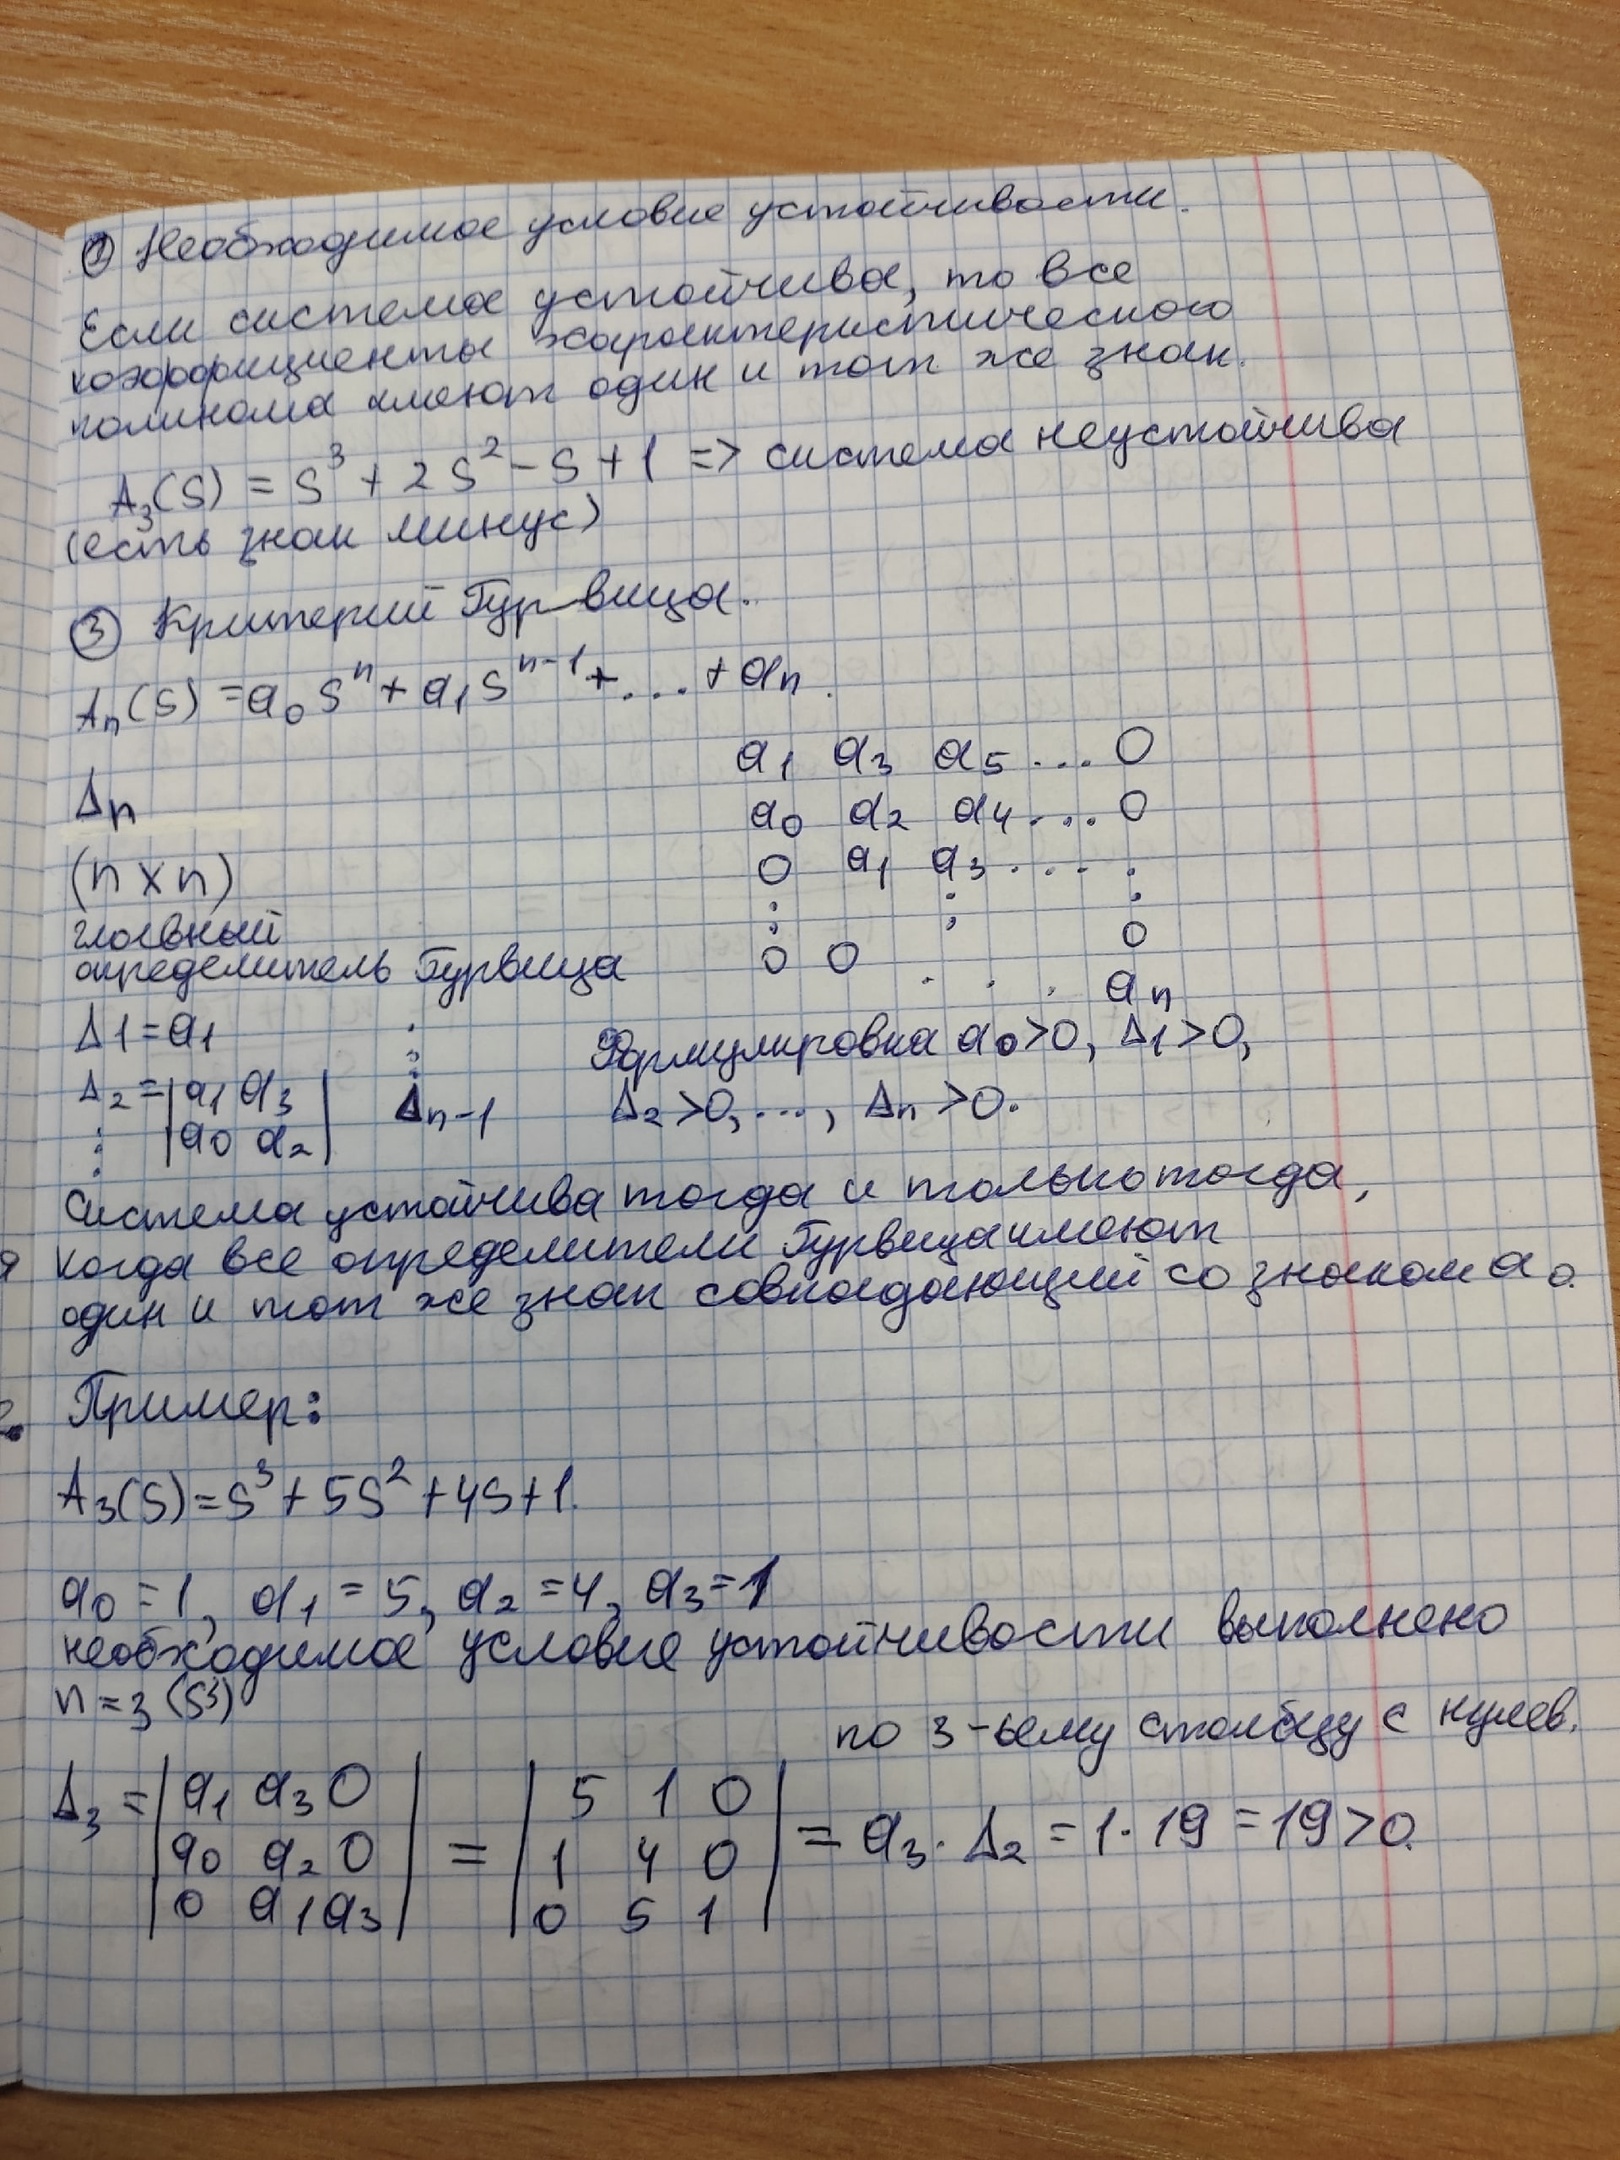 ① Необходимое условие устойчивости.
Если система устойчива, то все
коэффициенты характеристического
полинома имеют один и тот же знак.
A₃(S) = S³ + 2S² - S + 1 => система неустойчива
(есть знак минус)
③ Критерий Гурвица.
Aₙ(S) = a₀Sⁿ + a₁Sⁿ⁻¹ + ... + aₙ.
a₁ a₃ a₅ ... 0
Δₙ
a₀ a₂ a₄ ... 0
(n x n)
0 a₁ a₃ ... .
главный
: : :
0
определитель Гурвица
0 0 . . . aₙ
Δ1 = a₁
: Формулировка a₀>0, Δ₁>0,
Δ₂ = | a₁ a₃ | Δₙ₋₁ Δ₂>0, ..., Δₙ>0.
: | a₀ a₂ |
Система устойчива тогда и только тогда,
я когда все определители Гурвица имеют
один и тот же знак совпадающий со знаком a₀.
Пример:
A₃(S) = S³ + 5S² + 4S + 1.
a₀ = 1, a₁ = 5, a₂ = 4, a₃ = 1
необходимое условие устойчивости выполнено
n = 3 (S³)
по 3-ьему столбцу с нулев.
Δ₃ = | a₁ a₃ 0 | | 5 1 0 |
| a₀ a₂ 0 | = | 1 4 0 | = a₃ · Δ₂ = 1 · 19 = 19 > 0.
| 0 a₁ a₃ | | 0 5 1 |